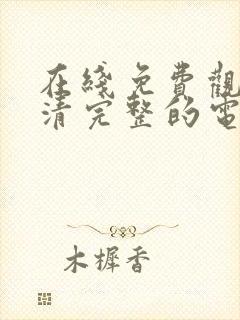 在綫免費觀
清完整的電
木樨香